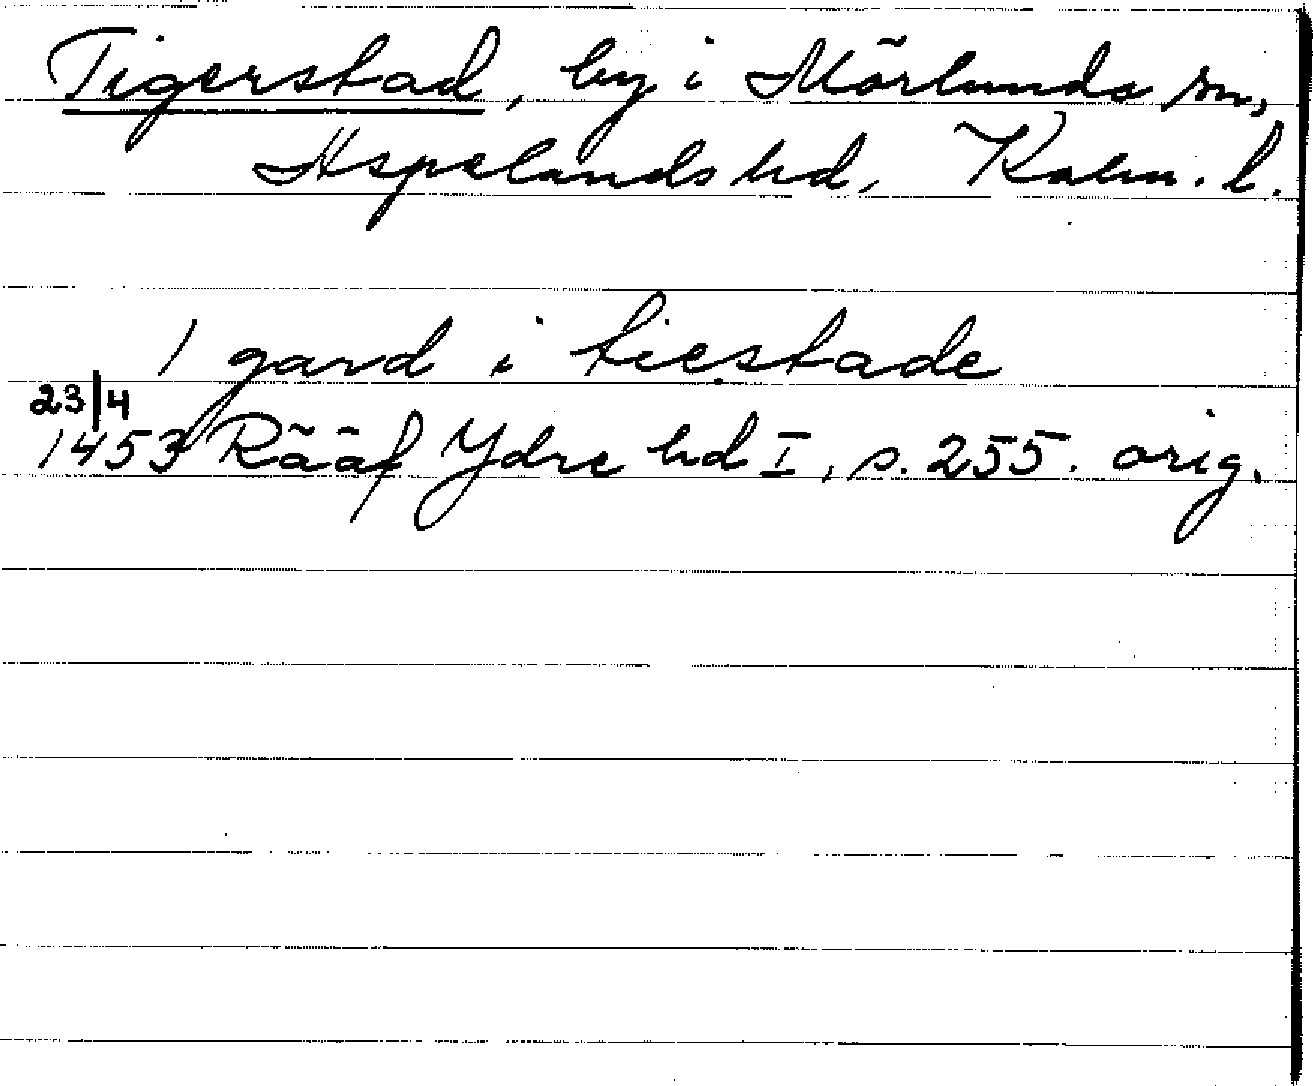 Tigerstad, by i Mörlunda sn,
Aspelands hd, Kalm. l.
1 gard i tiestade
23/4
1453 Rääf Ydre hd I, s. 255. orig.